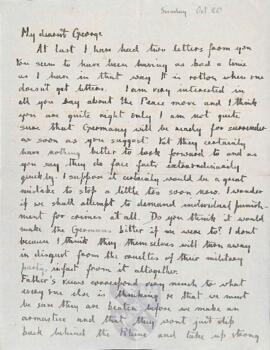 Sunday Oct 20
My dearest George
At last I have had two letters from you
You seem to have been having as bad a time
as I have in that way It is rotten when one
doesn't get letters. I am very interested in
all you say about the Peace move and I think
you are quite right only I am not quite
sure that Germany will be ready for surrender
as soon as you suggest. Yet they certainly
have nothing better to look forward to and as
you say they do face facts extraordinarily
quickly. I suppose it certainly would be a great
mistake to stop a little too soon now. I wonder
if we shall attempt to demand individual punish-
ment for crimes at all. Do you think it would
make the Germans bitter if we were to? I dont
because I think they themselves will turn away
in disgust from the cruelties of their military
party, infact from it altogether.
Father's views correspond very much to what
every one else is thinking is that we must
be sure they are beaten before we make an
armistice and that they wont just slip
back behind the Rhine and take up strong